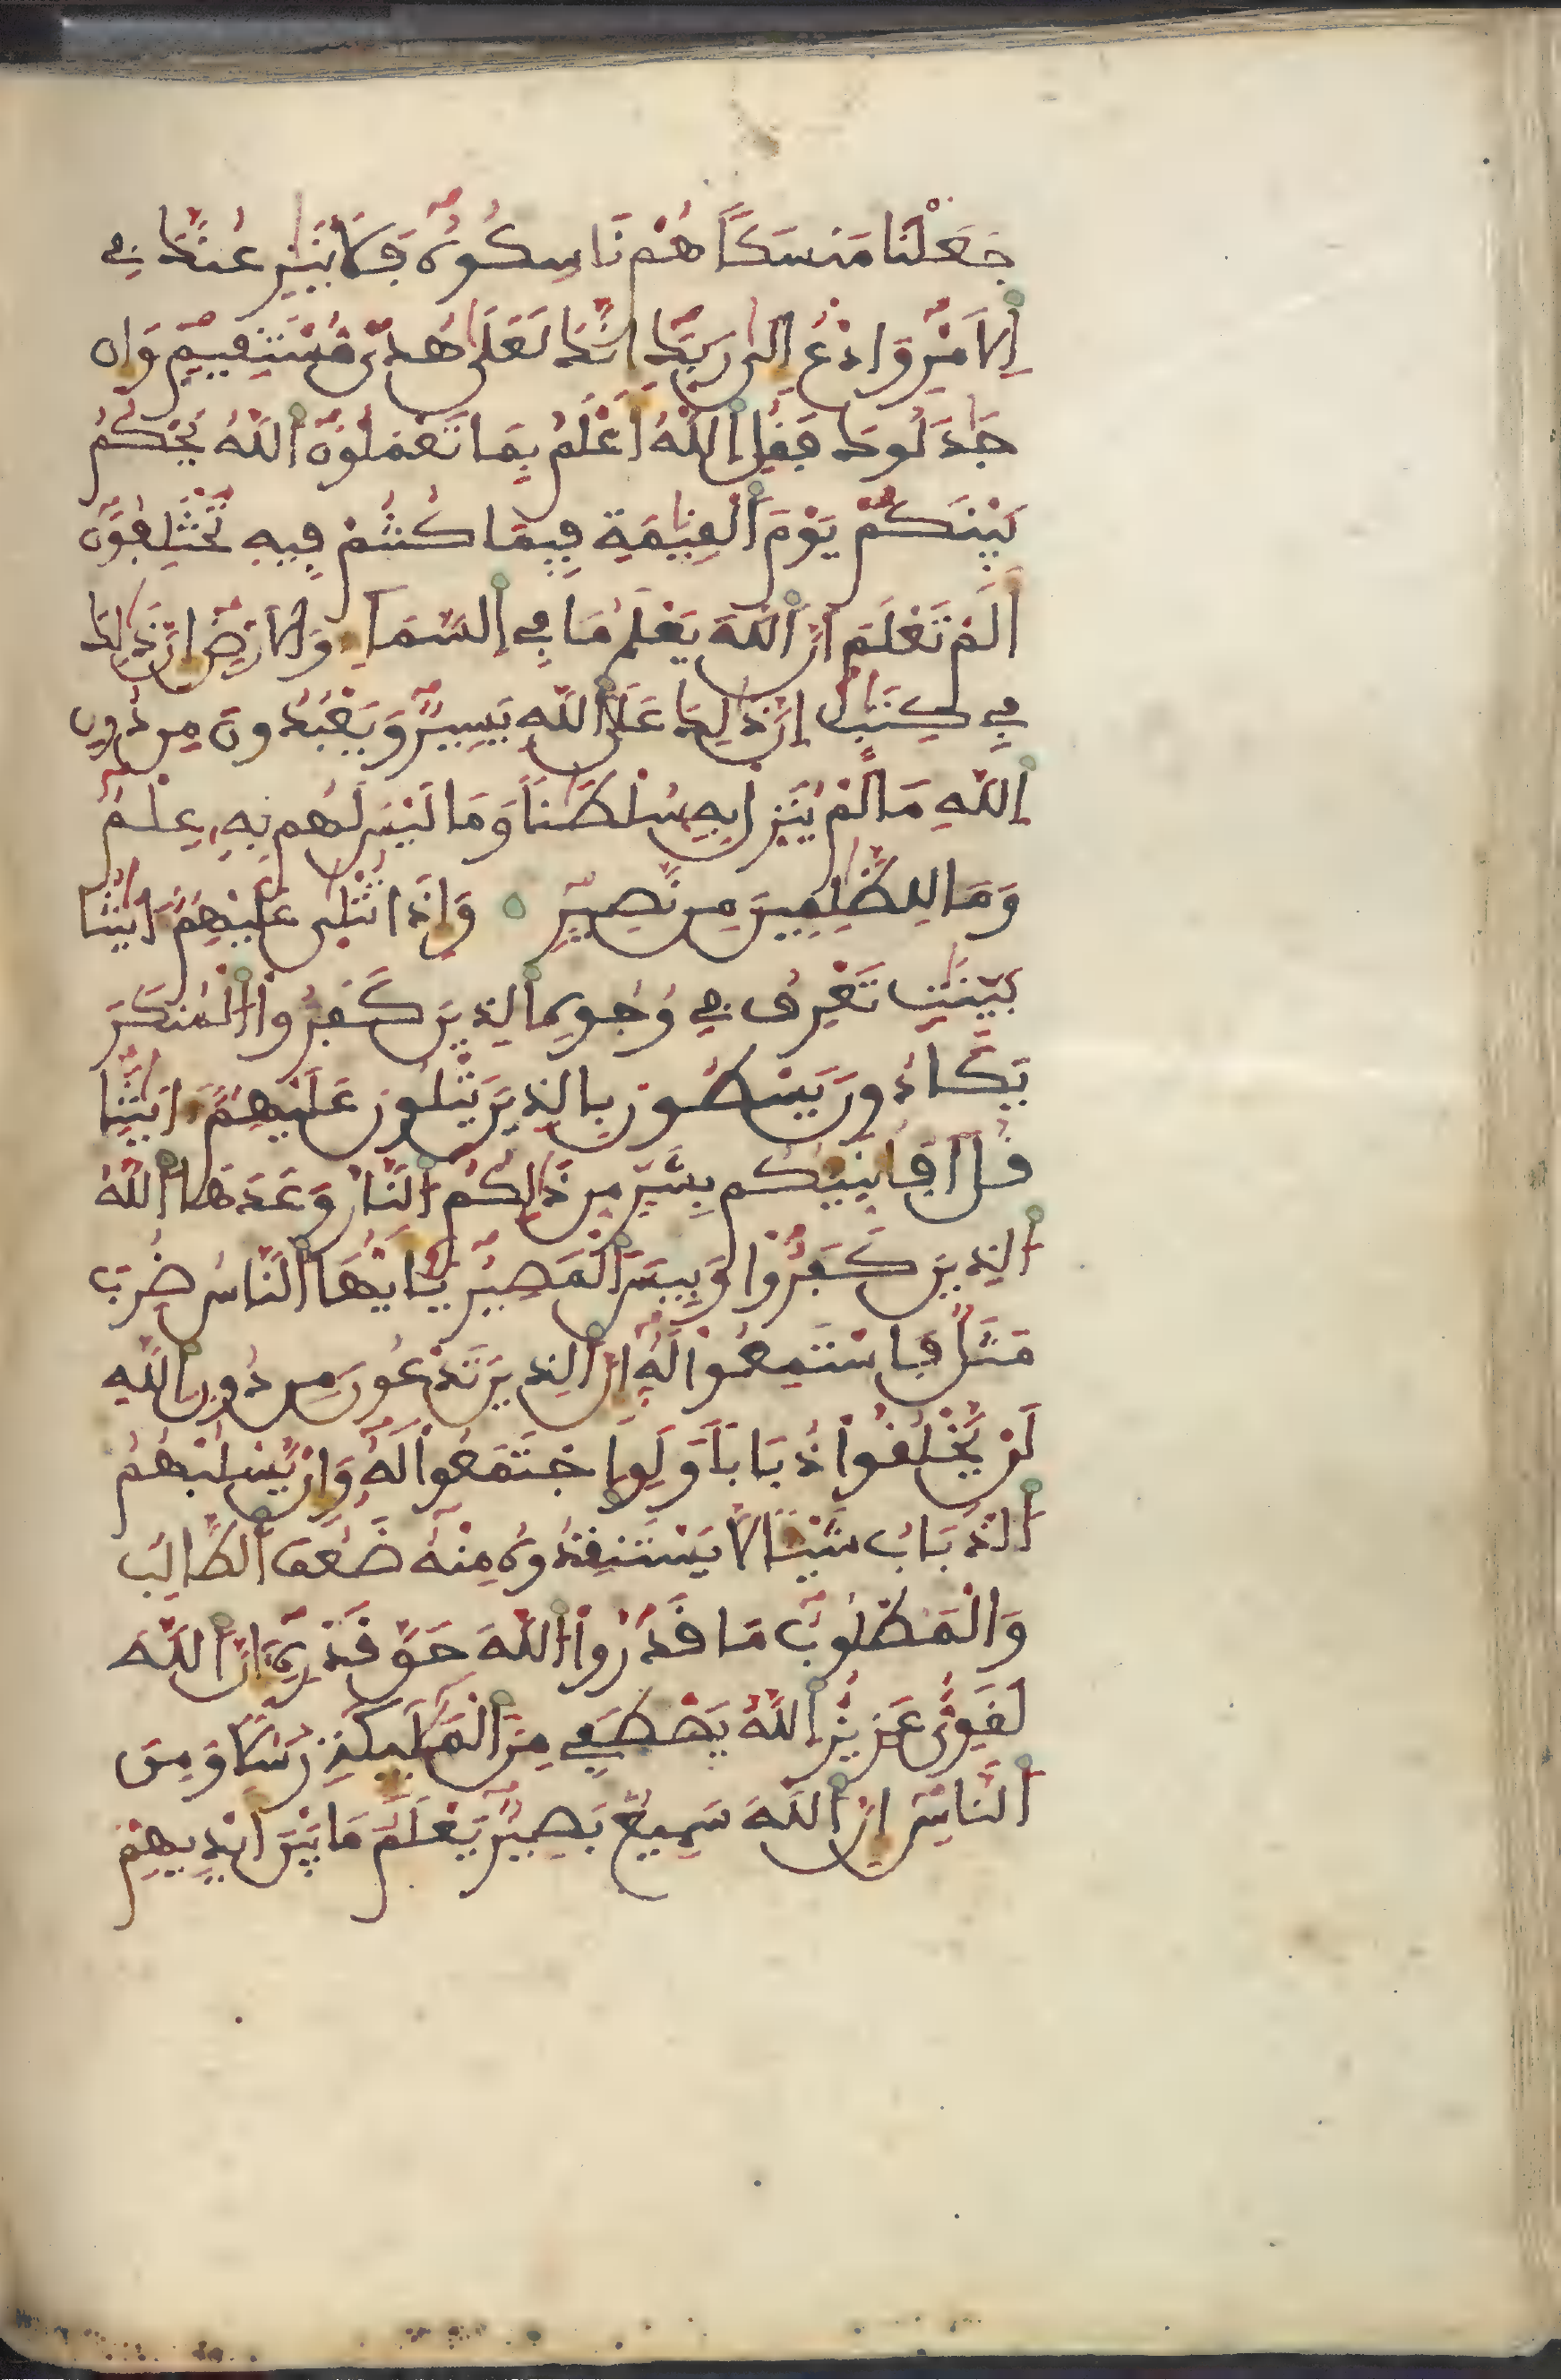 جَعَلْنَا مَنسَكاً هُمْ نَاسِكُوهُ فَلَا يُنَٰزِعُنَّكَ فِے
اِ۬لَامْرِ وَادْعُ إِلَىٰ رَبِّكَ إِنَّكَ لَعَلَىٰ هُدىٗ مُّسْتَقِيمٖ وَإِن
جَٰدَلُوكَ فَقُلِ اِ۬للَّهُ أَعْلَمُ بِمَا تَعْمَلُونَ اَ۬للَّهُ يَحْكُمُ
بَيْنَكُمْ يَوْمَ اَ۬لْقِيَٰمَةِ فِيمَا كُنتُمْ فِيهِ تَخْتَلِفُونَ
أَلَمْ تَعْلَمَ اَنَّ اَ۬للَّهَ يَعْلَمُ مَا فِے اِ۬لسَّمَآءِ وَالَارْضِ إِنَّ ذَٰلِكَ
فِے كِتَٰبٍ إِنَّ ذَٰلِكَ عَلَى اَ۬للَّهِ يَسِيرٌ وَيَعْبُدُونَ مِن دُونِ
اِ۬للَّهِ مَا لَمْ يُنَزِّلْ بِهِ سُلْطَٰناً وَمَا لَيْسَ لَهُم بِهِ عِلْمٌ
وَمَا لِلظَّٰلِمِينَ مِن نَّصِيرٖ وَإِذَا تُتْلَىٰ عَلَيْهِمُ ءَايَٰتُنَا
بَيِّنَٰتٖ تَعْرِفُ فِے وُجُوهِ اِ۬لذِينَ كَفَرُوا اُ۬لْمُنكَرَ
يَكَادُونَ يَسْطُونَ بِالذِينَ يَتْلُونَ عَلَيْهِمُ ءَايَٰتِنَا
قُلَ اَفَأُنَبِّئُكُم بِشَرّٖ مِّن ذَٰلِكُمُ اُ۬لنَّارُ وَعَدَهَا اَ۬للَّهُ
اُ۬لذِينَ كَفَرُوا وَبِيسَ اَ۬لْمَصِيرُ يَٰأَيُّهَا اَ۬لنَّاسُ ضُرِبَ
مَثَلٌ فَاسْتَمِعُوا لَهُ إِنَّ اَ۬لذِينَ تَدْعُونَ مِن دُونِ اِ۬للَّهِ
لَنْ يَّخْلُقُوا ذُبَاباً وَلَوِ اِ۪جْتَمَعُوا لَهُ وَإِنْ يَّسْلُبْهُمُ
اُ۬لذُّبَابُ شَيْـٔاً لَّا يَسْتَنقِذُوهُ مِنْهُ ضَعُفَ اَ۬لطَّالِبُ
وَالْمَطْلُوبُ مَا قَدَرُوا اُ۬للَّهَ حَقَّ قَدْرِهِ إِنَّ اَ۬للَّهَ
لَقَوِيٌّ عَزِيزٌ اِ۬للَّهُ يَصْطَفِے مِنَ اَ۬لْمَلَٰٓئِكَةِ رُسُلاً وَمِنَ
اَ۬لنَّاسِ إِنَّ اَ۬للَّهَ سَمِيعٌ بَصِيرٌ يَعْلَمُ مَا بَيْنَ أَيْدِيهِمْ